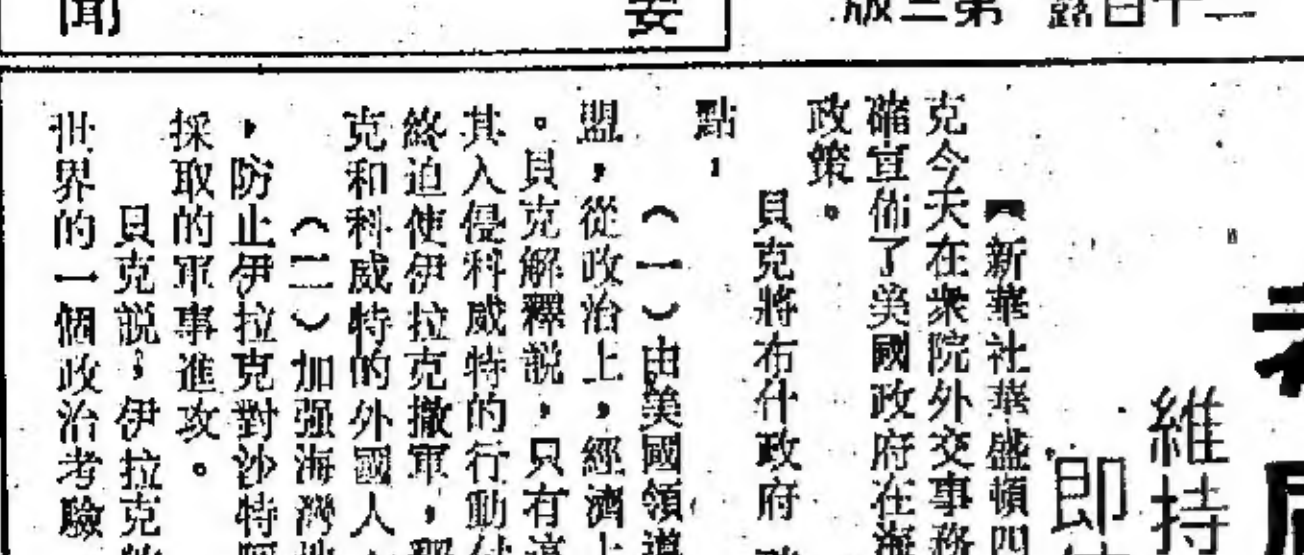 聞
要
第三版
維持
即
【新華社華盛頓四
克今天在衆院外交事務
確宣佈了美國政府在海
政策。
貝克將布什政府
點，
（一）由美國領導
盟，從政治上，經濟上
。貝克解釋説，只有這
其入侵科威特的行動付
終迫使伊拉克撤軍，釋
克和科威特的外國人
（二）加强海灣地
，防止伊拉克對沙特阿
採取的軍事進攻。
貝克説，伊拉克
世界的一個政治考驗